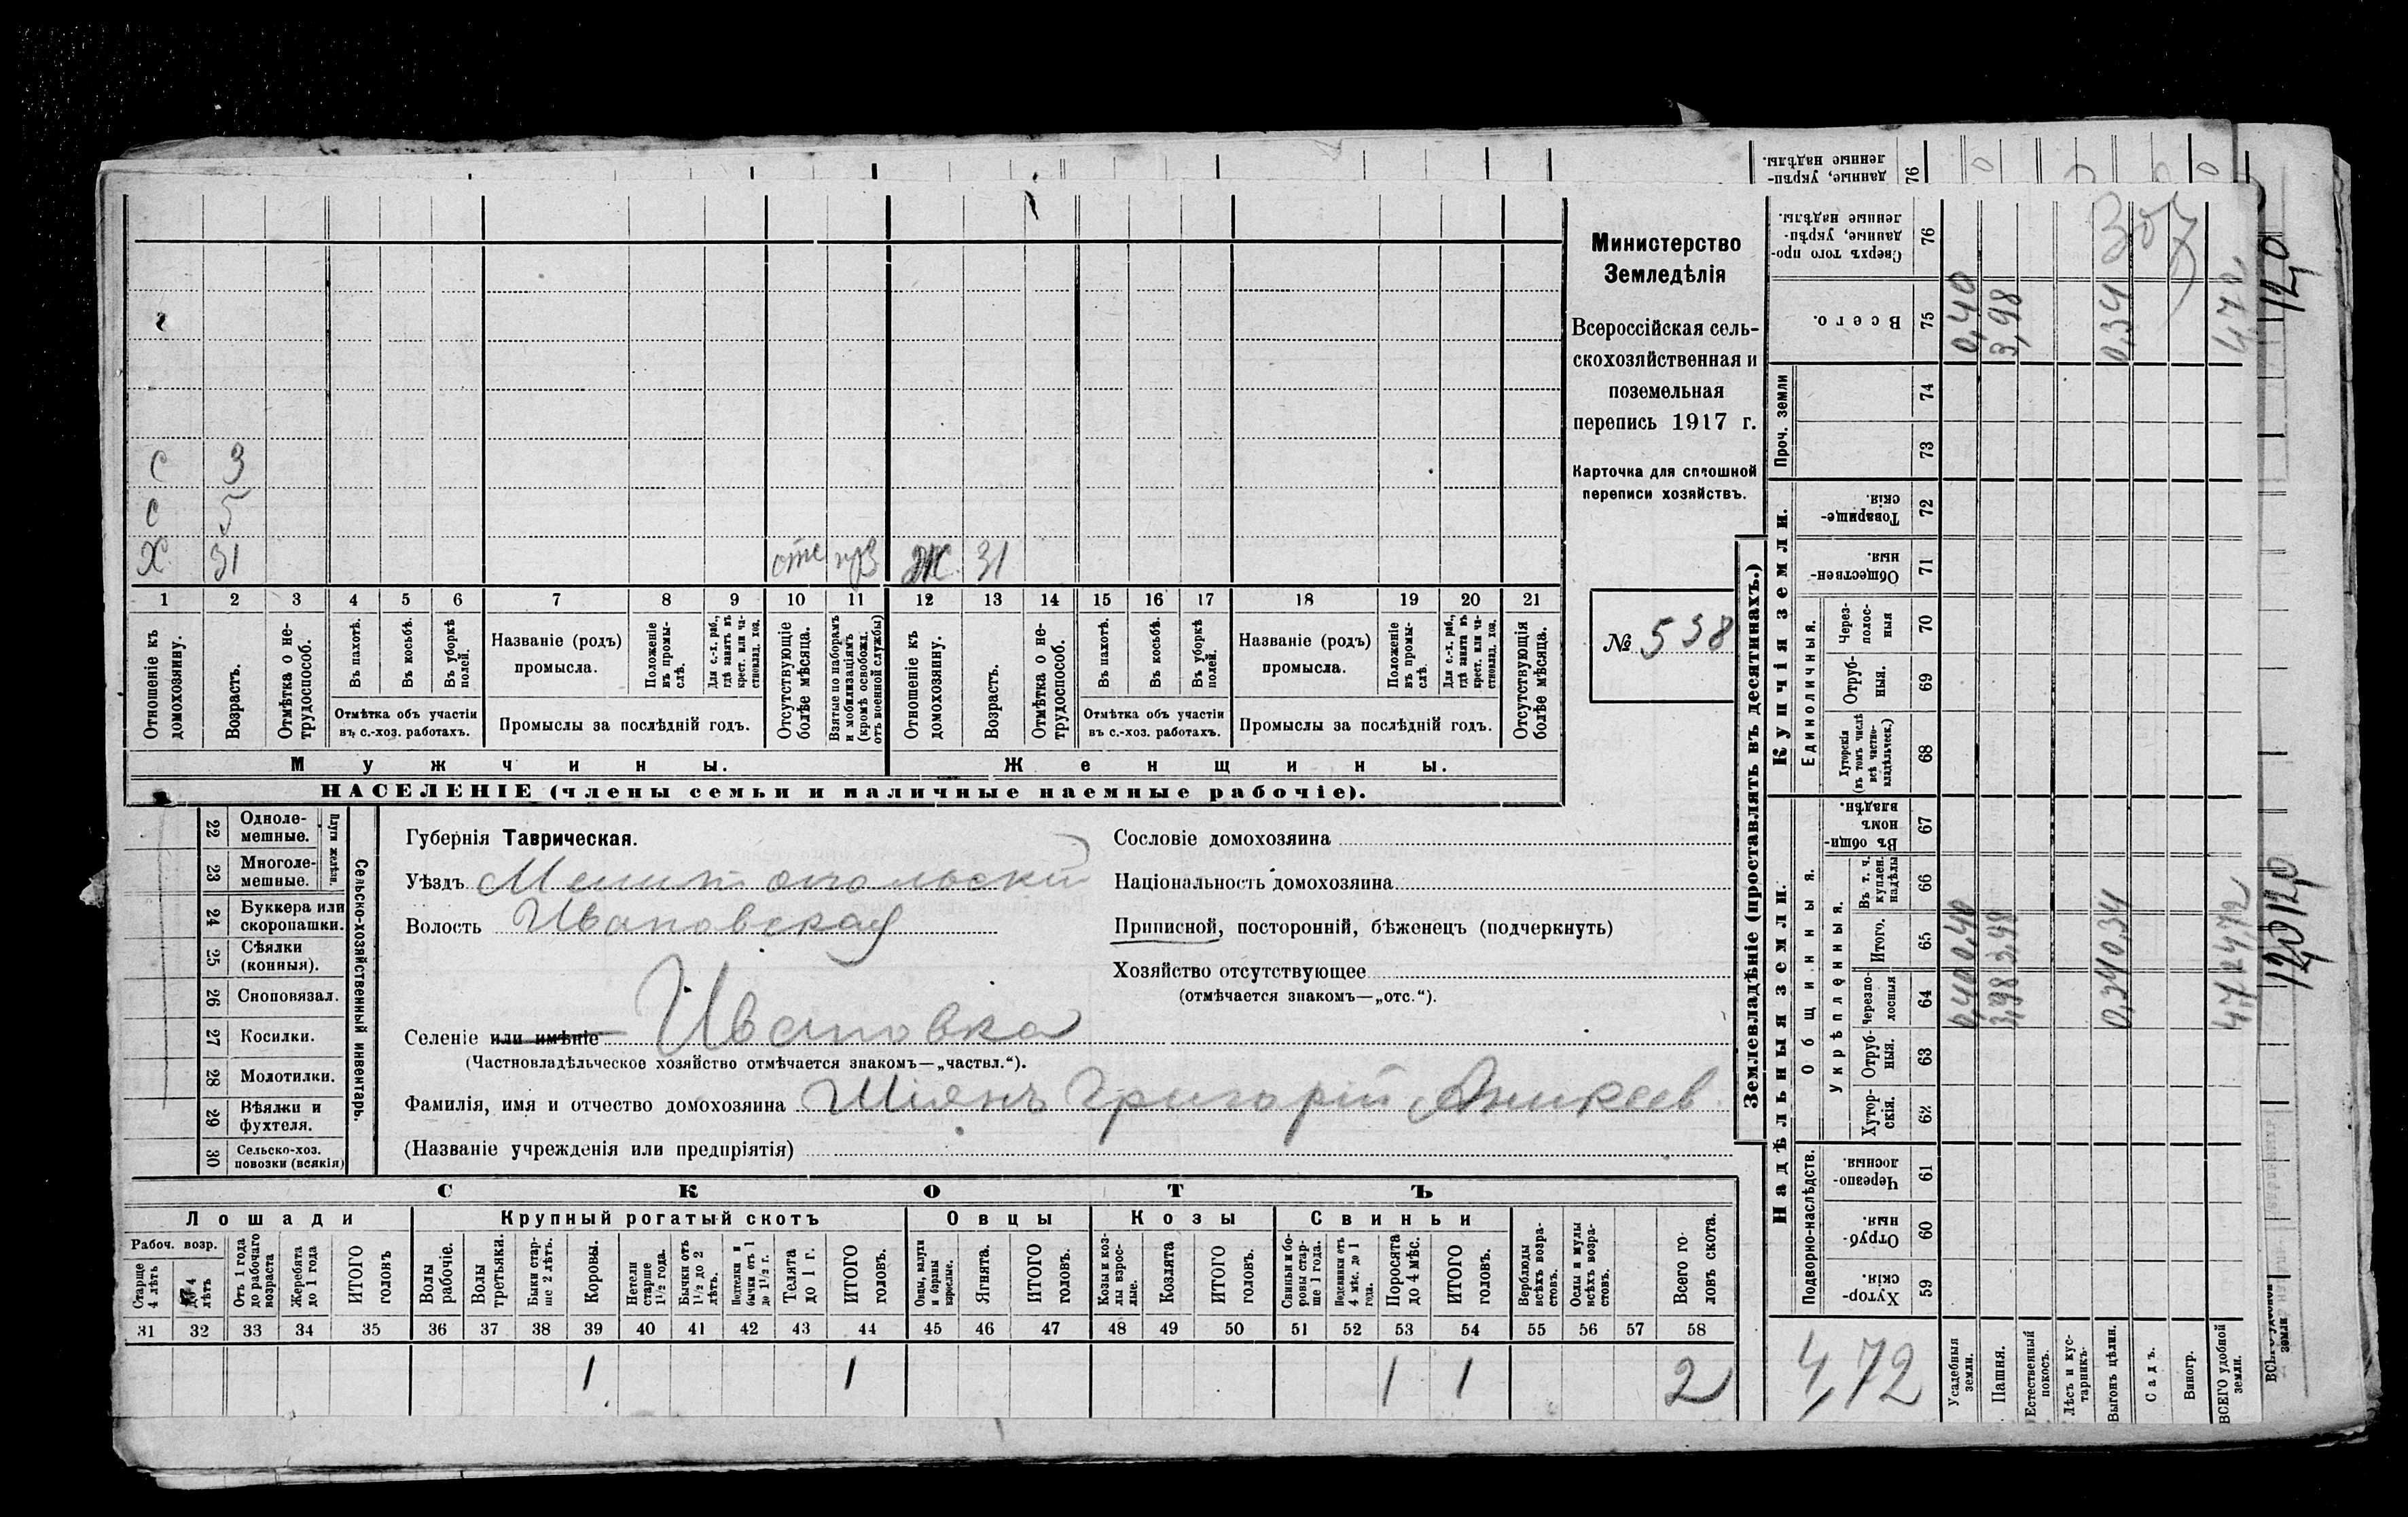 ленные надѣлы.
данные, укрѣп-
76
С 3
С 5
Х 31 отс взв Ж 31
1 2 3 4 5 6 7 8 9 10 11 12 13 14 15 16 17 18 19 20 21
Отношеніе къ домохозяину.
Возрастъ.
Отмѣтка о не-трудоспособ.
Въ пахотѣ.
Въ косьбѣ.
Въ уборкѣ полей.
Отмѣтка объ участіи въ с.-хоз. работахъ.
Названіе (родъ) промысла.
Положеніе въ промы-слѣ.
Для с.-х. раб., гдѣ занятъ въ крест. или ча-стновлад. хоз.
Промыслы за послѣдній годъ.
Отсутствующіе болѣе мѣсяца.
Взятые по наборамъ и мобилизаціямъ (кромѣ освобожл. отъ военной службы)
Отношеніе къ домохозяину.
Возрастъ.
Отмѣтка о не-трудоспособ.
Въ пахотѣ.
Въ косьбѣ.
Въ уборкѣ полей.
Отмѣтка объ участіи въ с.-хоз. работахъ.
Названіе (родъ) промысла.
Положеніе въ промы-слѣ.
Для с.-х. раб., гдѣ занята въ крест. или ча-стновлад. хоз.
Промыслы за послѣдній годъ.
Отсутствующія болѣе мѣсяца.
Мужчины.
Женщины.
НАСЕЛЕНІЕ (члены семьи и наличные наемные рабочіе).
Министерство
Земледѣлія
Всероссійская сель-
скохозяйственная и
поземельная
перепись 1917 г.
Карточка для сплошной
переписи хозяйствъ.
№ 538
22 Одноле-мешные.
23 Многоле-мешные.
Плуги желѣзн.
24 Буккера или скоропашки.
25 Сѣялки (конныя).
26 Сноповязал.
27 Косилки.
28 Молотилки.
29 Вѣялки и фухтеля.
30 Сельско-хоз. повозки (всякія)
Сельско-хозяйственный инвентарь.
Губернія Таврическая.
Уѣздъ Мелитопольскій
Волость Ивановская
Селеніе или имѣніе Ивановка
(Частновладѣльческое хозяйство отмѣчается знакомъ—„частвл.“).
Фамилія, имя и отчество домохозяина Шіянъ Григорій Аникеев
(Названіе учрежденія или предпріятія)
Сословіе домохозяина
Національность домохозяина
Приписной, посторонній, бѣженецъ (подчеркнуть)
Хозяйство отсутствующее
(отмѣчается знакомъ—„отс.“).
СКОТЪ
Лошади Крупный рогатый скотъ Овцы Козы Свиньи
Рабоч. возр.
Старше 4 лѣтъ
до 4 лѣтъ
Отъ 1 года до рабочаго возраста
Жеребята до 1 года
ИТОГО головъ
Волы рабочіе.
Волы третьяки.
Быки стар-ше 2 лѣтъ.
Коровы.
Нетели старше 1½ года.
Бычки отъ 1½ до 2 лѣтъ.
Подтелки и бычки отъ 1 до 1½ г.
Телята до 1 г.
ИТОГО головъ.
Овцы, валухи и бараны взрослые.
Ягнята.
ИТОГО головъ.
Козы и коз-лы взрос-лые.
Козлята
ИТОГО головъ.
Свиньи и бо-ровы стар-ше 1 года.
Подсвинки отъ 4 мѣс. до 1 года.
Поросята до 4 мѣс.
ИТОГО головъ.
Верблюды всѣхъ возра-стовъ.
Ослы и мулы всѣхъ возра-стовъ.
Всего го-ловъ скота.
31 32 33 34 35 36 37 38 39 40 41 42 43 44 45 46 47 48 49 50 51 52 53 54 55 56 57 58
1 1 1 1 2
Землевладѣніе (проставлять въ десятинахъ.)
Надѣльныя земли.
Купчія земли.
Проч. земли
Подворно-наслѣдств.
Общинныя.
Укрѣпленныя.
Единоличныя.
Хутор-скія. 59
Отруб-ныя. 60
Черезпо-лосныя. 61
Хутор-скія. 62
Отруб-ныя. 63
Черезпо-лосныя 64
Итого. 65
Въ т. ч. куплен. надѣлы 66
Въ общи-номъ владѣн. 67
Хуторскія (въ томъ числѣ всѣ частно-владѣльческ.) 68
Отруб-ныя. 69
Через-полос-ныя 70
Обществен-ныя. 71
Товарище-скія. 72
73
74
Всего. 75
Сверхъ того про-данные, укрѣп-ленные надѣлы. 76
4,72
Усадебныя земли. 0,40 0,40 0,40
Пашня. 3,98 3,98 3,98
Естественный покосъ.
Лѣсъ и кус-тарникъ.
Выгонъ цѣлин. 0,34 0,34 0,34
Садъ.
Виногр.
ВСЕГО удобной земли. 4,72 4,72 4,72
307
120
120 120
земли.